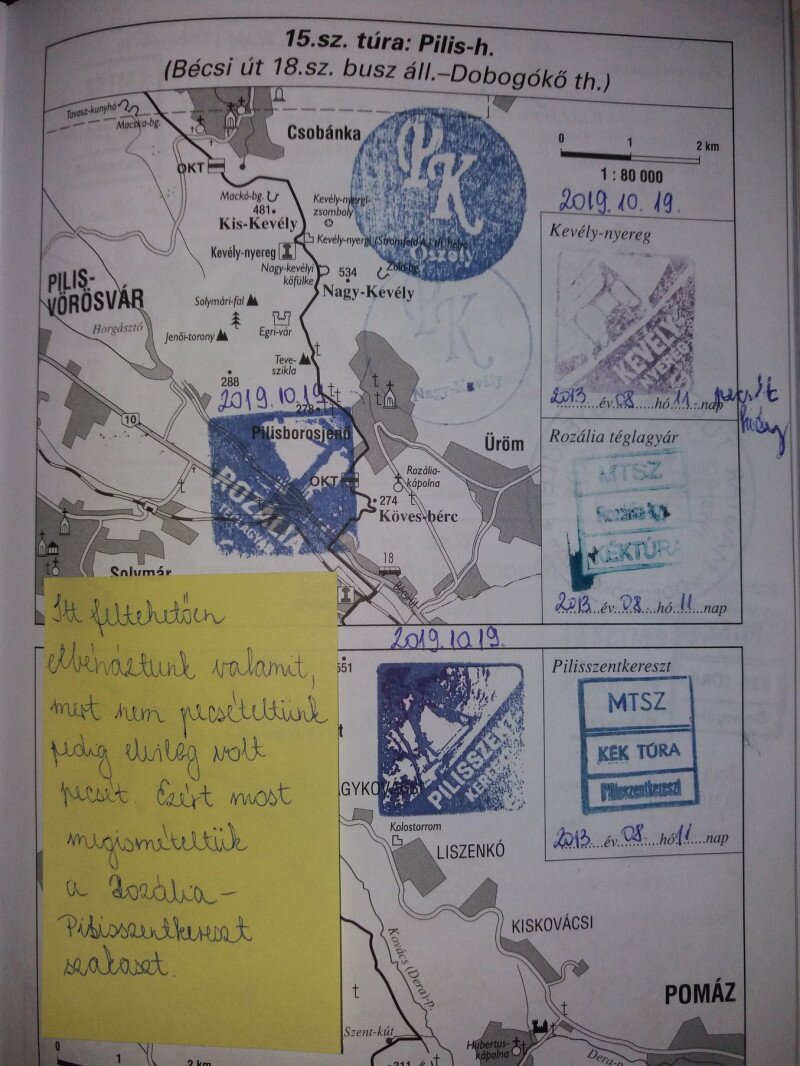 15.sz. túra: Pilis-h.
(Bécsi út 18.sz. busz áll.–Dobogókő th.)
Tavasz-kunyhó
Macska-bg.
Csobánka
PK
Oszoly
0 1 2 km
1 : 80 000
2019.10.19.
OKT
Mackó-bg.
481
Kis-Kevély
Kevély-nyergi-
zsomboly
Kevély-nyergi (Stromfeld A.) th. helye
Kevély-nyereg
Nagy-kevélyi
kőfülke
534
Zöld-bg.
Nagy-Kevély
PILIS-
VÖRÖSVÁR
Horgásztó
Solymári-fal
Jenői-torony
Egri-vár
Teve-
szikla
288
PK
Nagy-Kevély
Kevély-nyereg
KEVÉLY
NYEREG
2013 év 08 hó 11 nap
pecsét
hiány
2019.10.19
278
10
Pilisborosjenő
ROZÁLIA
TÉGLAGYÁR
OKT
Rozália-
kápolna
Üröm
274
Köves-bérc
18
Solymár
Rozália téglagyár
MTSZ
Rozália-t.gy.
KÉKTÚRA
2013 év 08 hó 11 nap
Itt feltehetően
elbéháztunk valamit,
mert nem pecsételtünk
pedig elvileg volt
pecsét. Ezért most
megismételtük
a Rozália–
Pilisszentkereszt
szakaszt.
2019.10.19.
551
PILISSZENT
KERESZT
Pilisszentkereszt
MTSZ
KÉK TÚRA
Pilisszentkereszt
2013 év 08 hó 11 nap
AGYKOVÁCSI
Kolostorrom
LISZENKÓ
KISKOVÁCSI
Kovács (Dera)-p.
POMÁZ
Szent-kút
Hubertus-
kápolna
Dera-p.
311
1 2 km